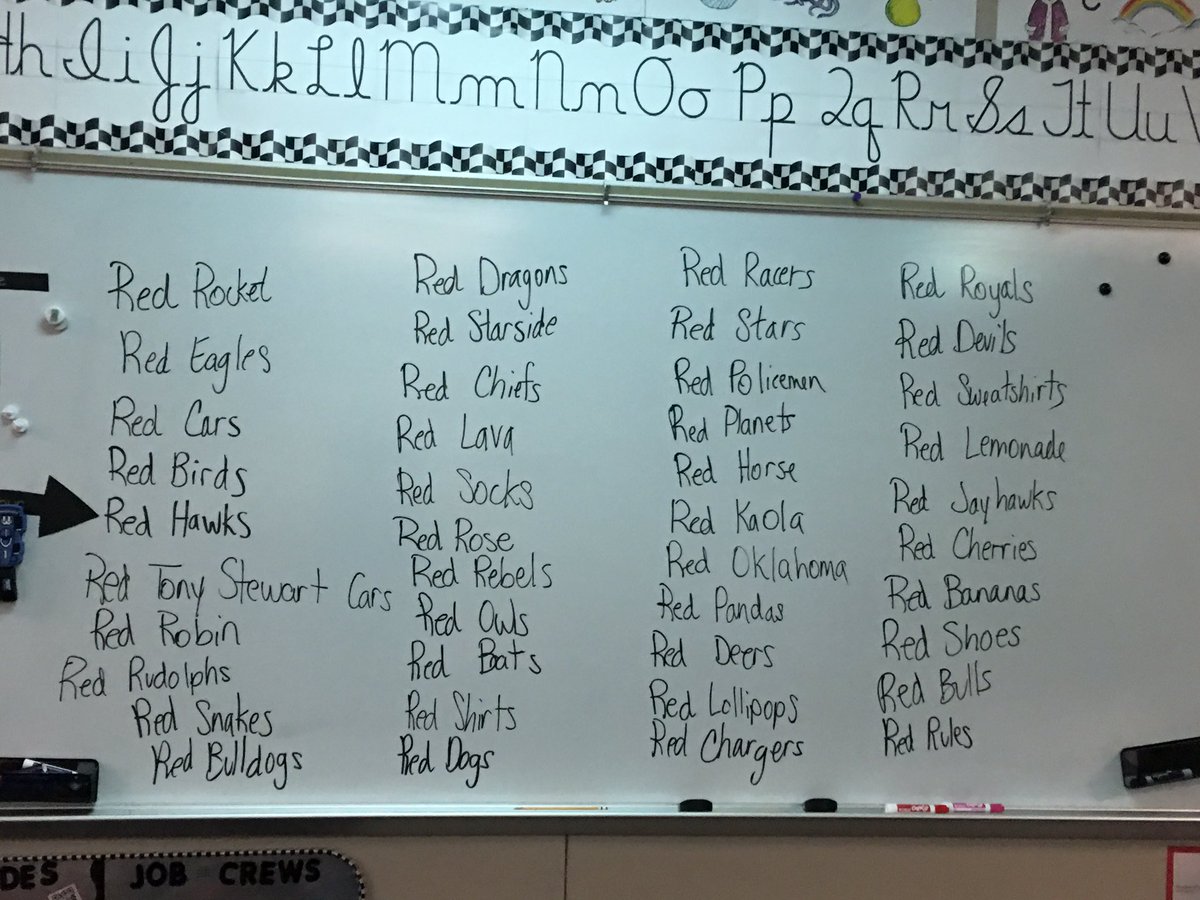 h Ii Jj Kk Ll Mm Nn Oo Pp Qq Rr Ss Tt Uu
Red Rocket
Red Eagles
Red Cars
Red Birds
Red Hawks
Red Tony Stewart Cars
Red Robin
Red Rudolphs
Red Snakes
Red Bulldogs
Red Dragons
Red Starside
Red Chiefs
Red Lava
Red Socks
Red Rose
Red Rebels
Red Owls
Red Bats
Red Shirts
Red Dogs
Red Racers
Red Stars
Red Policemen
Red Planets
Red Horse
Red Kaola
Red Oklahoma
Red Pandas
Red Deers
Red Lollipops
Red Chargers
Red Royals
Red Devils
Red Sweatshirts
Red Lemonade
Red Jayhawks
Red Cherries
Red Bananas
Red Shoes
Red Bulls
Red Rules
DES
JOB CREWS